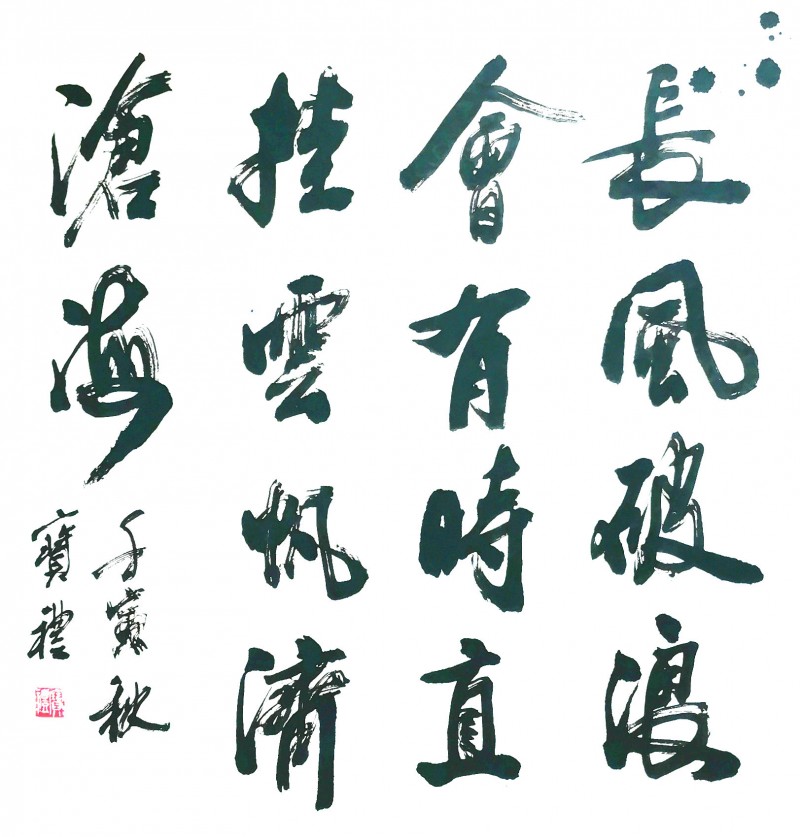 長風破浪
會有時直
挂雲帆濟
滄海
壬寅秋
寶禮